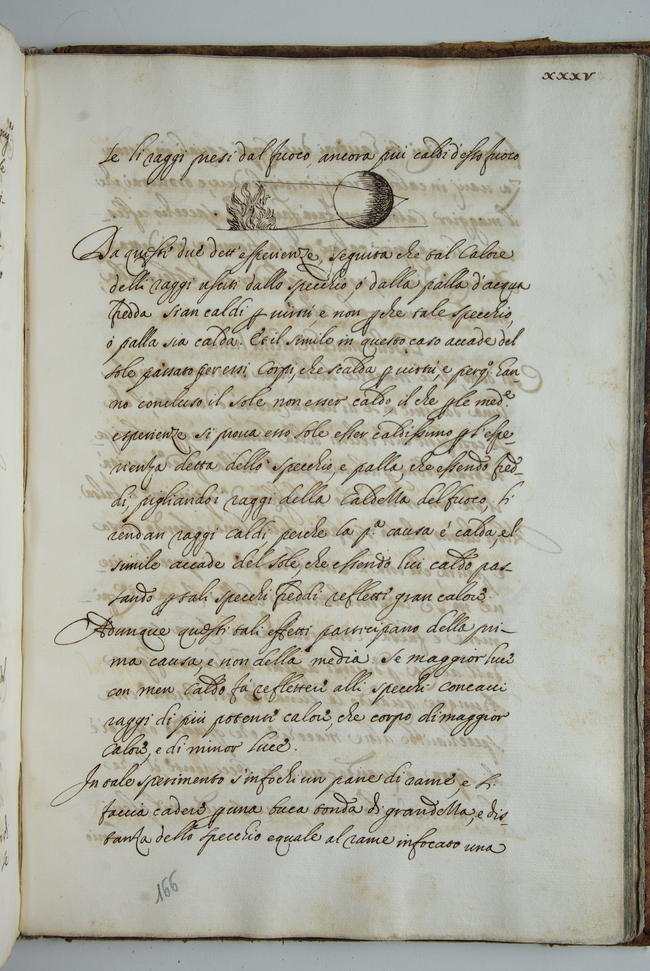 XXXV
Se li raggi presi dal fuoco, ancora piu caldi d'esso fuoco
Da questi due dett'esperienze, seguita che tal Calore
delli raggi usciti dallo specchio o dalla palla d'acqua
fredda sian caldi p virtù, e non pche tale specchio,
o palla sia calda. Et il simile in questo caso accade del
sole passato per essi Corpi, che scalda p virtù e perq.º han-
no concluso il Sole non esser caldo, il che p le med.e
esperienze si prova esso sole esser caldissimo p l'espe-
rienza detta dello specchio, e palla, che essendo fred-
di, pigliando i raggi della Caldezza del fuoco, ti
rendan raggi caldi perche la p.ª causa è calda, el
simile accade del sole, che essendo lui caldo pas-
sando p tali specchi freddi refletti gran calore.
Adunque questi tali effetti participano della pri-
ma causa, e non della media. Se maggior luce
con men Caldo fa reflettere alli specchi concavi
raggi di più potente calore, che corpo di maggior
Calore, e di minor luce.
In tale sperimento s'infochi un pane di rame, e ti
faccia cadere p una buca tonda di grandezza, e dis-
tanza dello specchio equale al rame infocato una
166